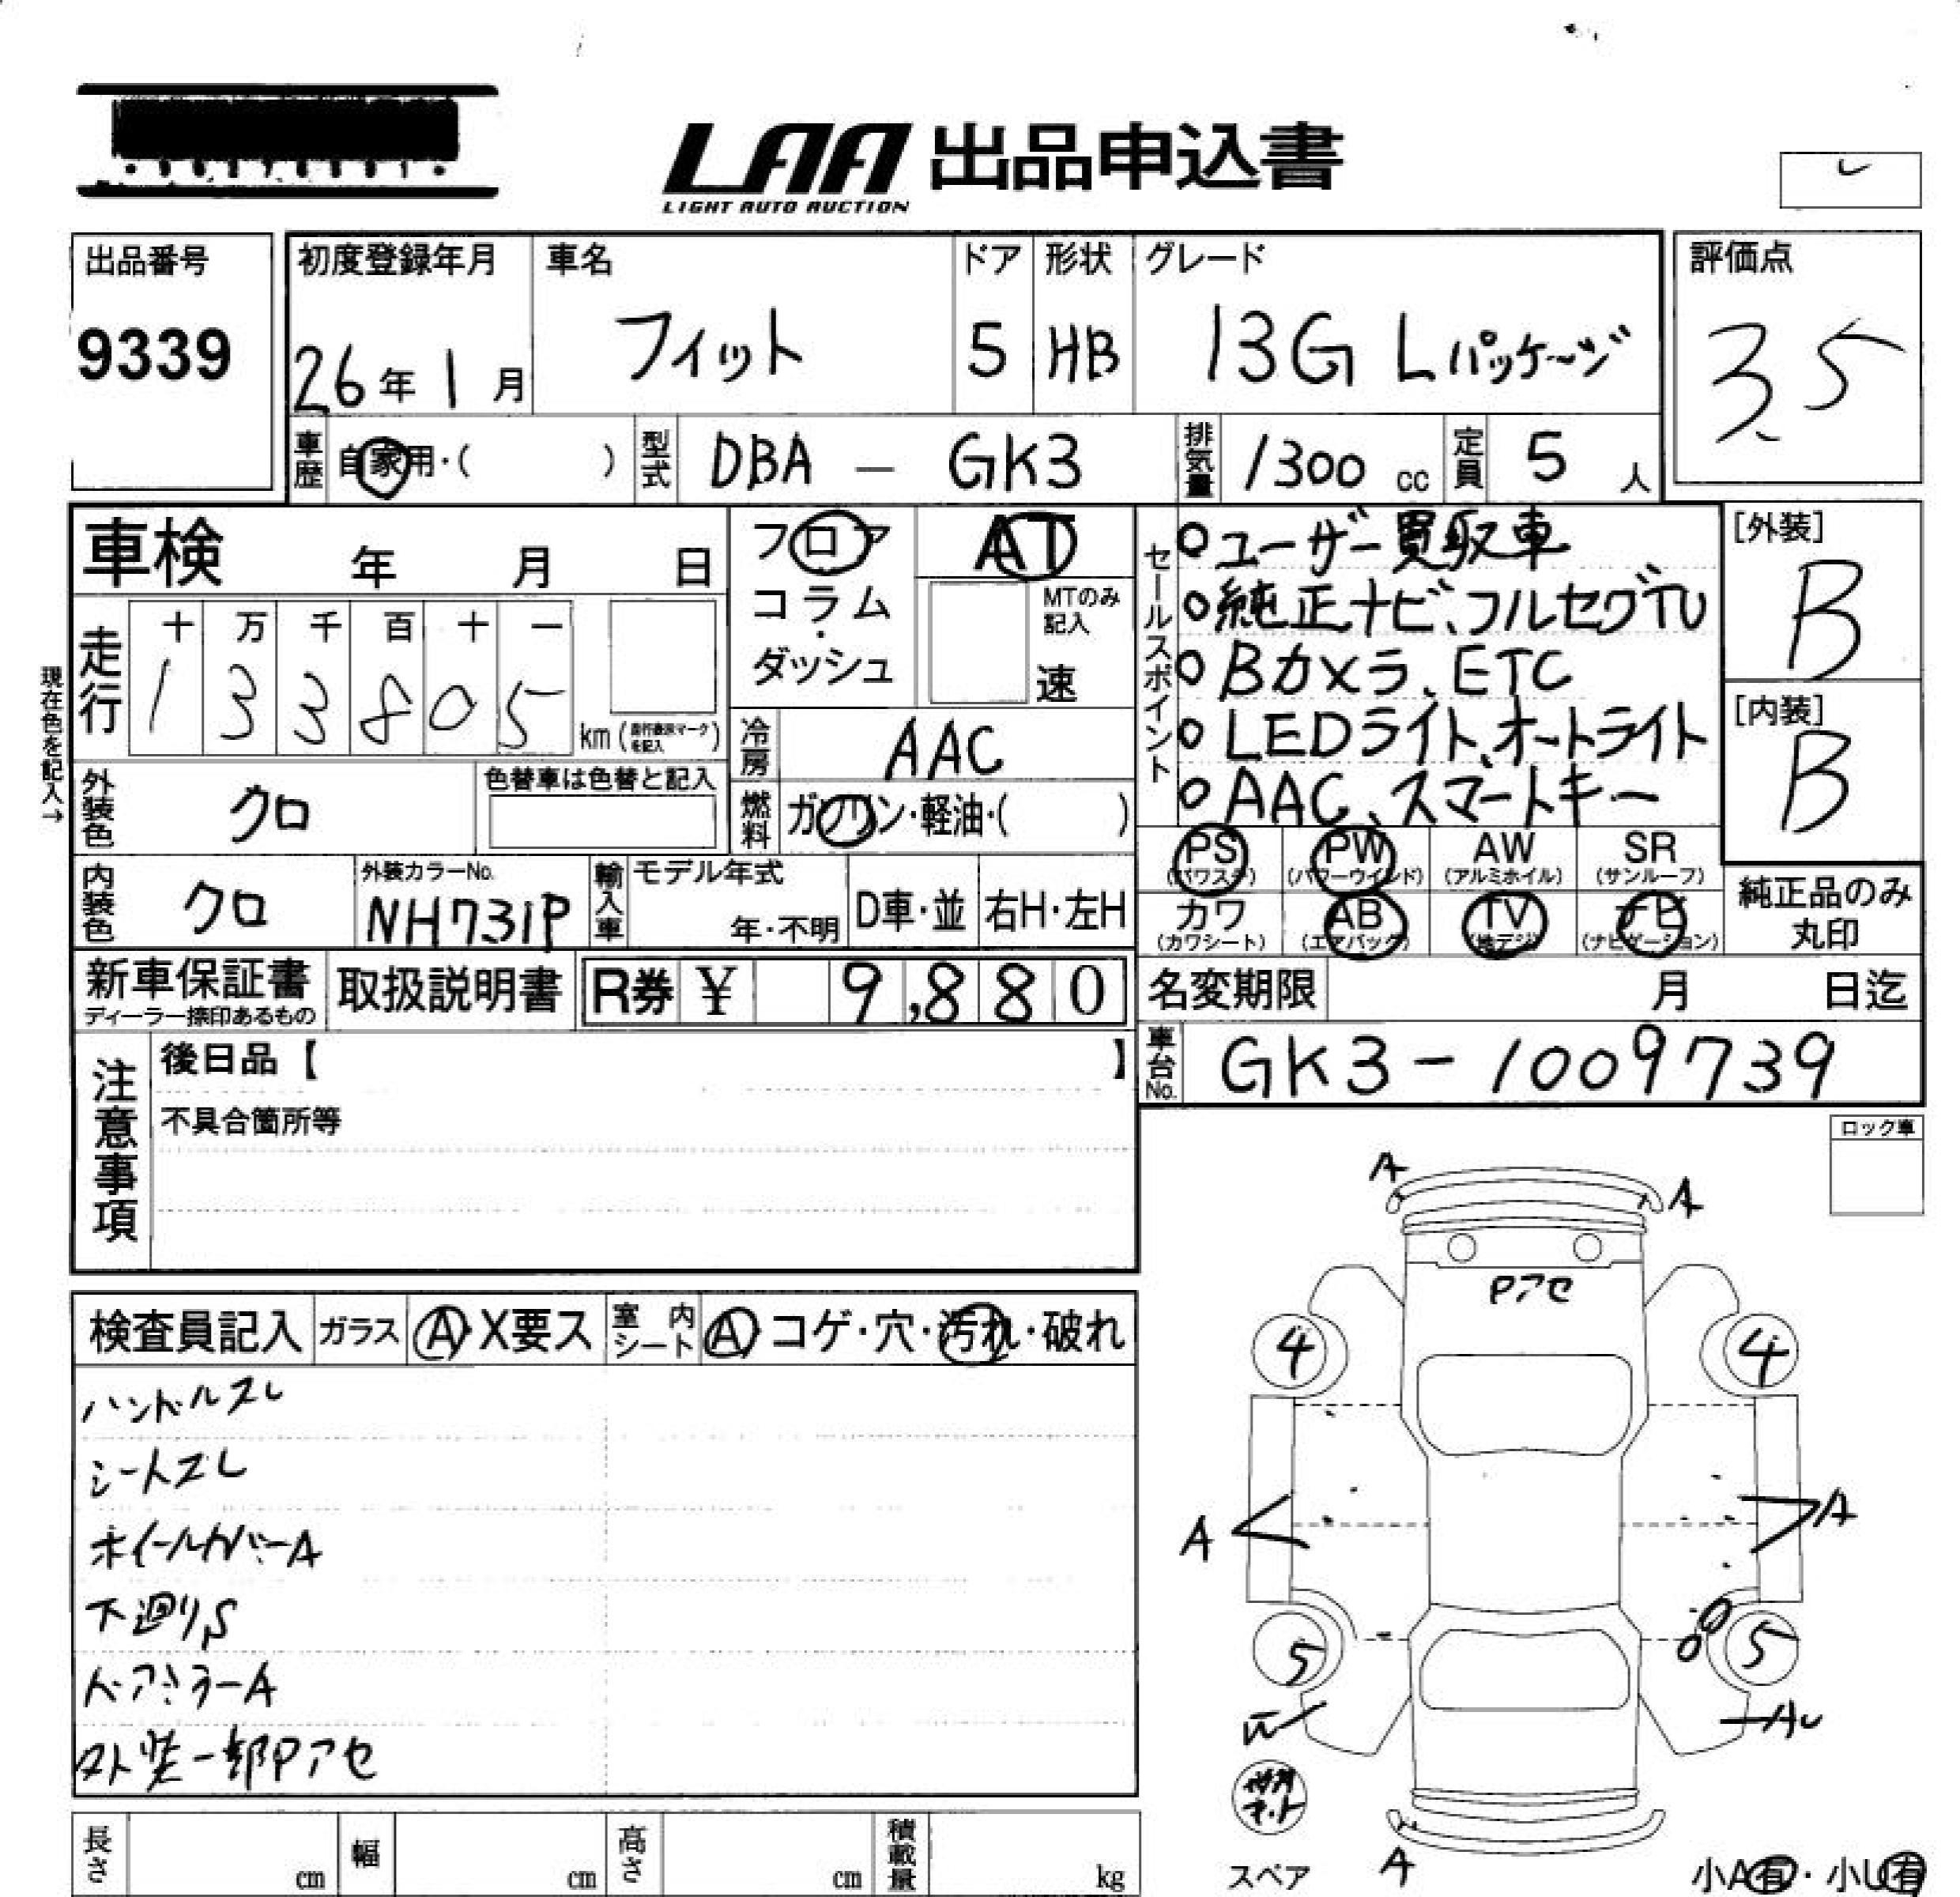 LAA 出品申込書
LIGHT AUTO AUCTION
出品番号
9339
初度登録年月
26年1月
車名
フィット
ドア
5
形状
HB
グレード
13G Lパッケージ
評価点
3.5
車歴
自家用・( )
型式
DBA - GK3
排気量
1300 cc
定員
5 人
車検 年 月 日
フロア
コラム
・
ダッシュ
AT
MTのみ
記入
速
現在色を記入→
走行
十 万 千 百 十 一
1 3 3 8 0 5
km
冷房
AAC
外装色
クロ
色替車は色替と記入
燃料
ガソリン・軽油・( )
内装色
クロ
外装カラーNo.
NH731P
輸入車
モデル年式
年・不明
D車・並
右H・左H
セールスポイント
○ユーザー買取車
○純正ナビ、フルセグTV
○Bカメラ、ETC
○LEDライト、オートライト
○AAC、スマートキー
[外装]
B
[内装]
B
PS PW AW SR
(パワステ) (パワーウインド) (アルミホイル) (サンルーフ)
カワ AB TV ナビ
(カワシート) (エアバック) (地デジ) (ナビゲーション)
純正品のみ
丸印
新車保証書
ディーラー捺印あるもの
取扱説明書
R券 ¥ 9,880
名変期限 月 日迄
車台No.
GK3-1009739
注意事項
後日品【 】
不具合箇所等
ロック車
検査員記入
ガラス
A・X要ス
室内シート
A・コゲ・穴・汚れ・破れ
ハンドルスレ
シートスレ
ホイールカバーA
下廻りS
ドアミラーA
外装一部Pアセ
A
A
Pアセ
4
4
A
A
5
5
AU
A
スペア
小A有・小U有
長さ cm
幅 cm
高さ cm
積載量 kg